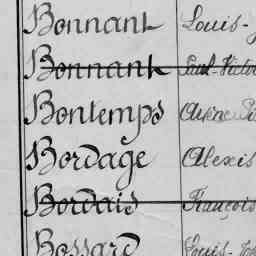 Bonnant Louis-
Bonnant Paul-Victo
Bontemps
Bordage Alexis
Bordais François
Bossard Louis-